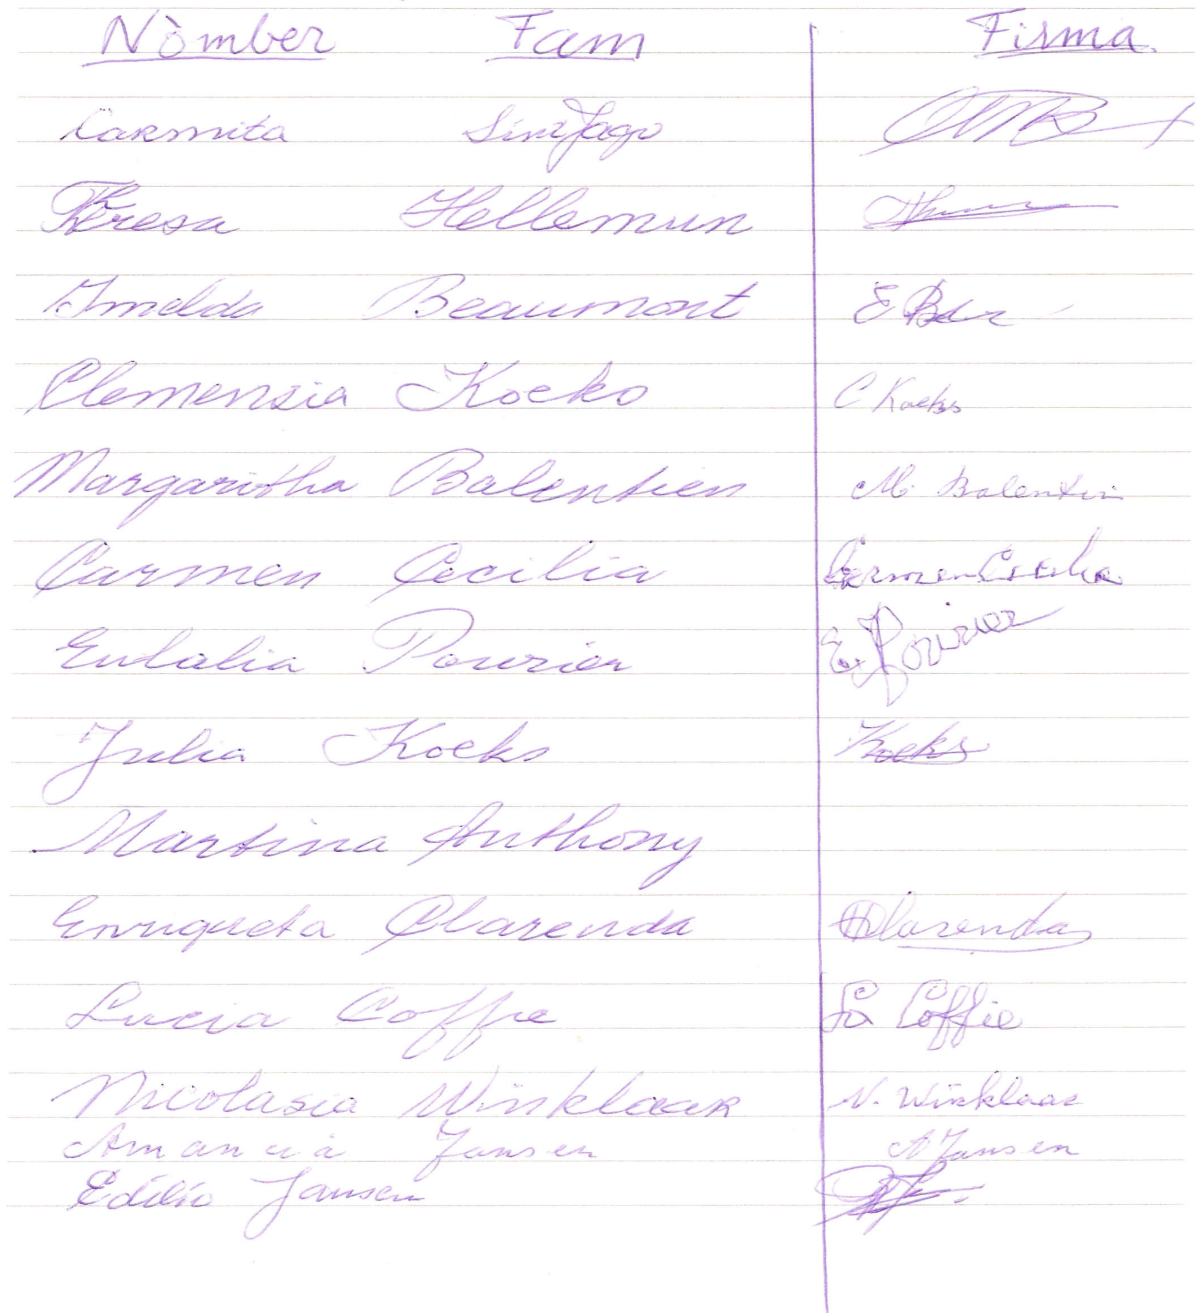 Nòmber Fam Firma.
Carmita
Teresa Hellemun
Imelda Beaumont
Clemensia Koeks C Koeks
Margaritha Balentien M. Balentin
Carmen Cecilia Carmen Cecilia
Eulalia Pourier E. Pourier
Julia Koeks Koeks
Martina Anthony
Enriqueta Clarenda Clarenda
Lucia Coffie La Coffie
Nicolasia Winklaar N. Winklaar
Amancia Jansen A Jansen
Edilio Jansen